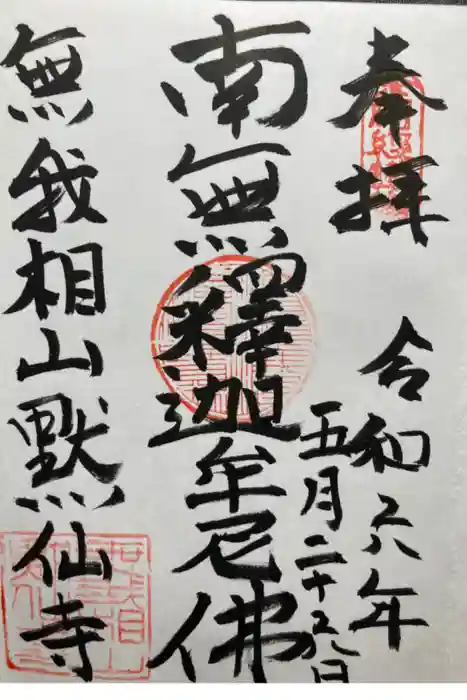 奉拝
令和六年
五月二十五日
南無釋迦牟尼佛
無我相山默仙寺